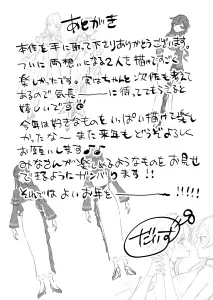 あとがき
本作を手に取って下さりありがとうございます。
ついに両想いになる2人を描けてすごく
楽しかったです。実はちゃんと次作も考えて
あるので気長――に待ってもらえると
嬉しいです
今年は好きなものをいっぱい描けて楽し
かったな〜 また来年もどうぞよろしく
お願いします♪♪
みなさんが楽しめるようなものをお見せ
できるようにガンバります!!
それでは よいお年を――!!!!!
だいず